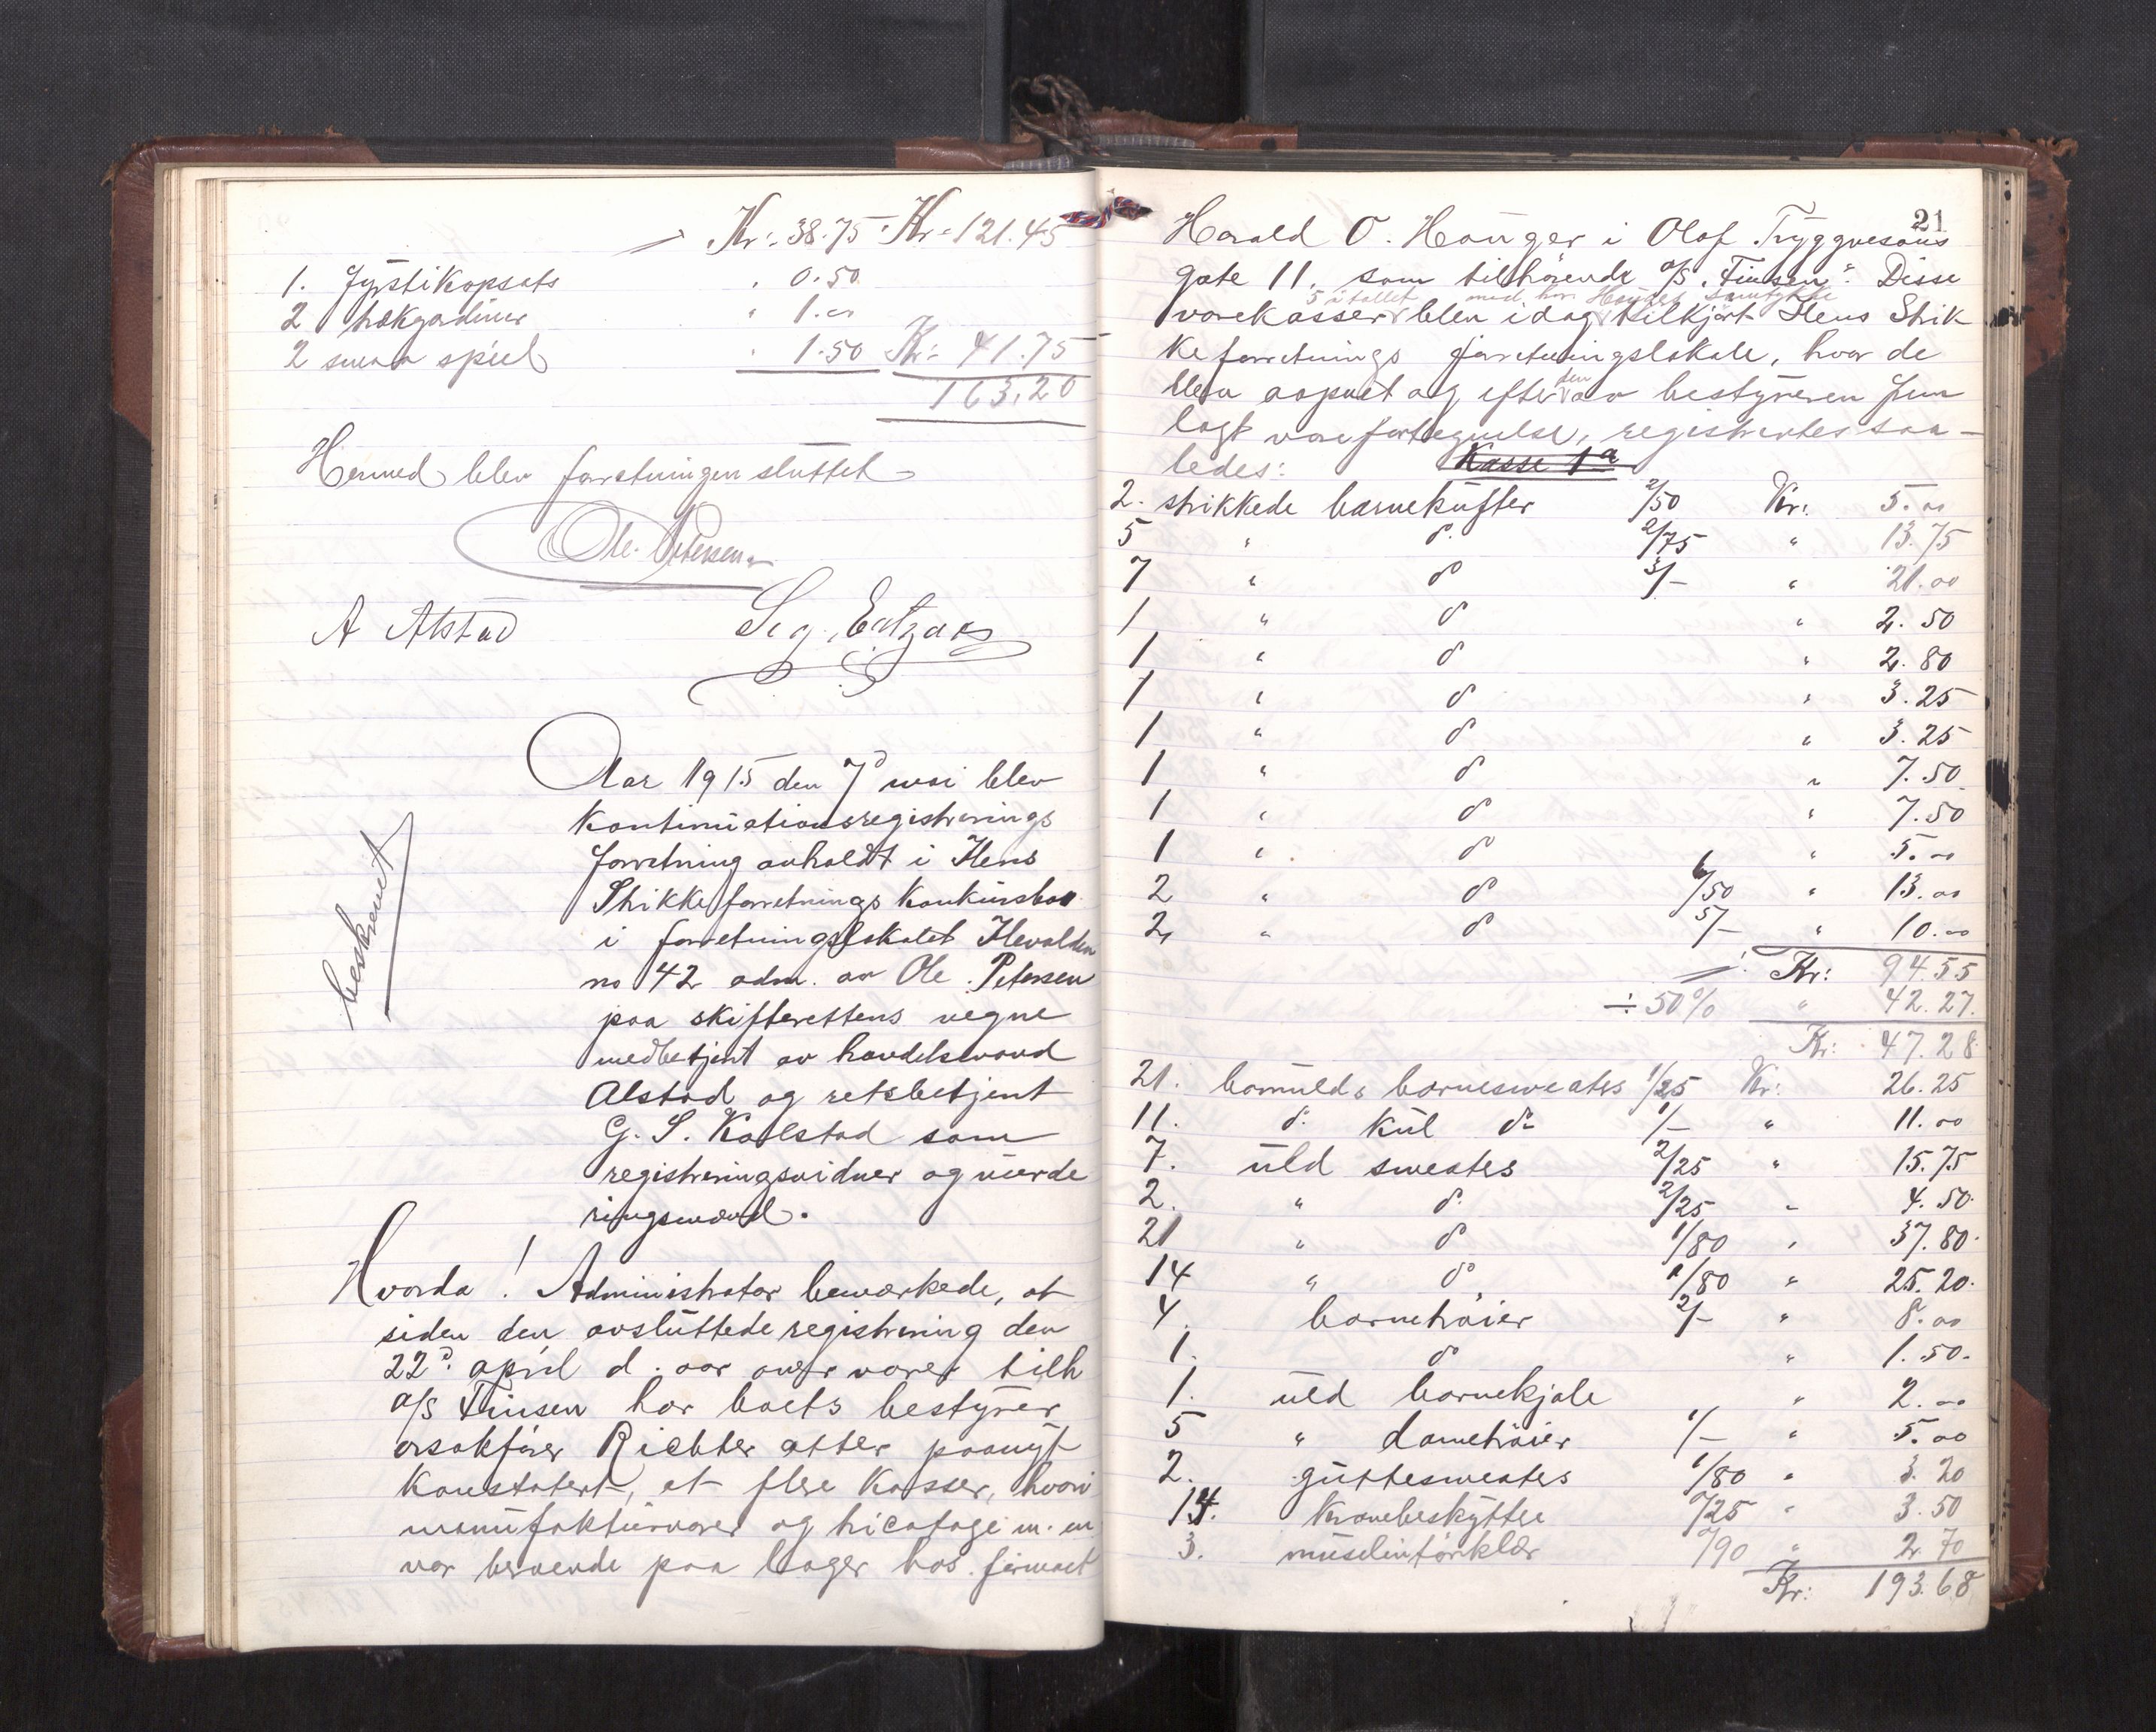 Kr: 38.75 Kr: 121.45
1. Fyrstikopsats " 0.50
2 trækgardiner " 1.00
2 smaa speil " 1.50 Kr: 41.75
163.20
Hermed blev forretningen sluttet
Ole Petersen
A Alstad Sig.
Aar 1915 den 7d mai blev
kontinuationsregistrerings
forretning avholdt i Hens
Strikkeforretnings konkursbo
i forretningslokalet Ilevolden
no 42 adm. av Ole Petersen
paa skifterettens vegne
medbetjent av handelsmand
Alstad og retsbetjent
G. S. Karlstad som
registreringsvidner og vurde
ringsmænd.
beskrevet
Hvorda! Administrator bemærkede, at
siden den avsluttede registrering den
22d april d. aar over varer tilh
a/s Finsen har boets bestyrer
orsakfører Richter atter paanyt
konstatert, at flere kasser, hvori
manufakturvarer og tricotage m. m
var beroende paa lager hos firmaet
21
Harald O. Hauger i Olaf Tryggvesøns
gate 11, som tilhørende a/s "Finsen". Disse
5 i tallet med hr. samtykke
varekasser blev idag tilkjørt Hens Strik
keforretnings forretningslokale, hvor de
blev aapnet og efter den av bestyreren frem
lagt varefortegnelse, registrertes saa-
ledes: Kasse 1a
2. strikkede barnekufter 2/50 Kr: 5.00
5 " do 2/75 " 13.75
7 " do 3/- " 21.00
1 " do " 2.50
1 " do " 2.80
1 " do " 3.25
1 " do " 3.25
1 " do " 7.50
1 " do " 7.50
1 " do " 5.00
2 " do 6/50 " 13.00
2 " do 5/- " 10.00
Kr: 94.55
÷ 50% " 42.27.
Kr: 47.28
21. bomulds barnesweates 1/25 Kr: 26.25
11. do kul do 1/- " 11.00
7. uld sweates 2/25 " 15.75
2. " do 2/25 " 4.50
21 " do 1/80 " 37.80
14 " do 1/80 " 25.20
4. barnetrøier 2/- " 8.00
1. do " 1.50
1. uld barnekjole " 2.00
5 " dametrøier 1/- " 5.00
2. guttesweates 1/80 " 3.20
14. kravebeskytter 0/25 " 3.50
3. muselintørklær 0/90 " 2.70
Kr: 193.68